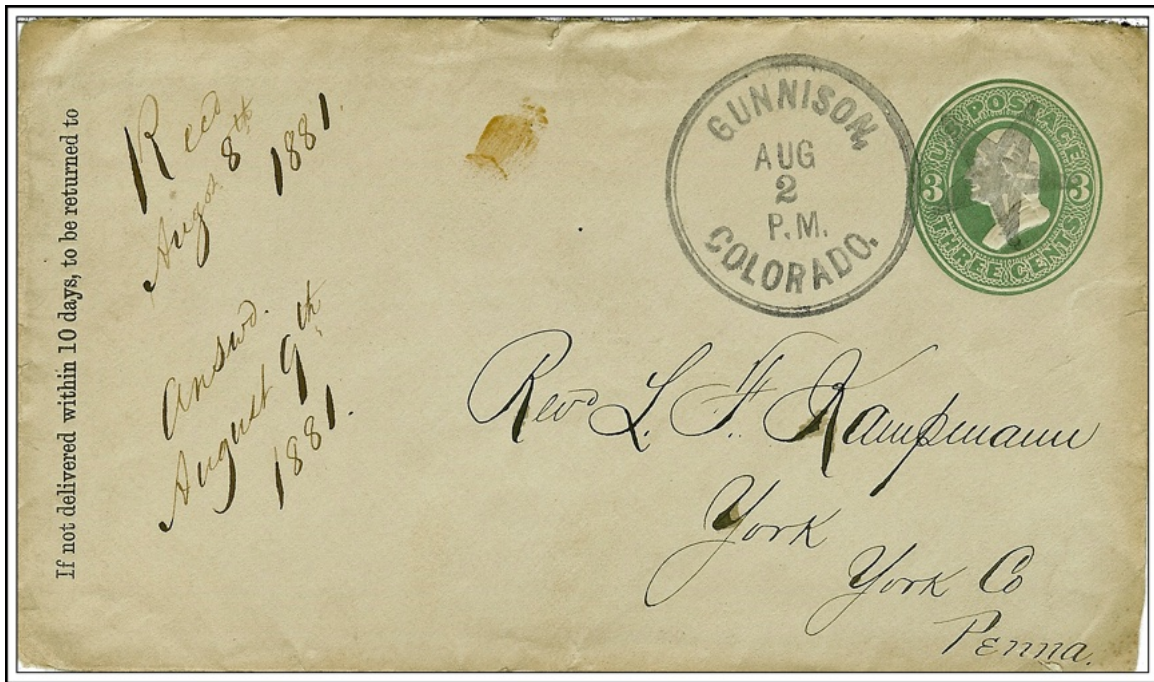 If not delivered within 10 days, to be returned to
Recd
Augst 8th
1881.
Answd.
August 9th
1881.
GUNNISON,
AUG
2
P.M.
COLORADO.
U.S. POSTAGE
3 3
THREE CENTS
Revd L. F. Kampmann
York
York Co
Penna.